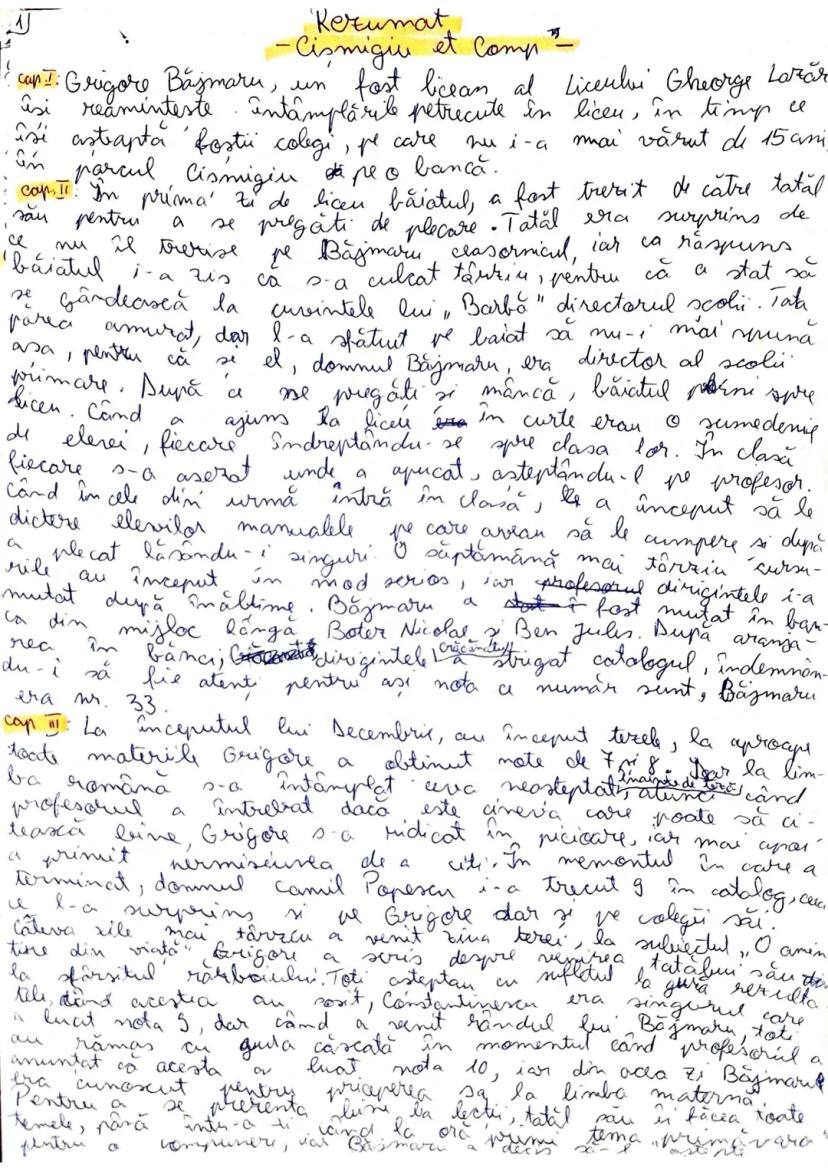 1)
Rezumat
-Cișmigiu et Comp"-
cap I: Grigore Băjmaru, un fost licean al Liceului Gheorge Lazăr
își reamintește întâmplările petrecute în liceu, în timp ce
își așteaptă foștii colegi, pe care nu i-a mai văzut de 15 ani,
în parcul Cișmigiu pe o bancă.
cap. II: În prima zi de liceu băiatul, a fost trezit de către tatăl
său pentru a se pregăti de plecare. Tatăl era surprins de
ce nu îl trezise pe Băjmaru ceasornicul, iar ca răspuns
băiatul i-a zis că s-a culcat târziu, pentru că a stat să
se gândească la cuvintele lui „Barbă" directorul școlii. Tata
părea amuzat, dar l-a sfătuit pe baiat să nu-i mai spună
așa, pentru că și el, domnul Băjmaru, era director al școlii
primare. După ce se pregăti și mâncă, băiatul porni spre
liceu. Când a ajuns la liceu în curte erau o sumedenie
de elevi, fiecare îndreptându-se spre clasa lor. În clasă
fiecare s-a așezat unde a apucat, așteptându-l pe profesor.
Când în cele din urmă intră în clasă, le a început să le
dicteze elevilor manualele pe care aveau să le cumpere și după
a plecat lăsându-i singuri. O săptămână mai târziu cursu-
rile au început în mod serios, iar dirigintele i-a
mutat după înălțime. Băjmaru a fost mutat în ban-
ca din mijloc lângă Boter Nicolae și Ben Jules. După aranja-
rea în bănci, dirigintele crăcănatul a strigat catalogul, îndemnân-
du-i să fie atenți pentru a-și nota ce număr sunt, Băjmaru
era nr. 33.
cap III: La începutul lui Decembrie, au început tezele, la aproape
toate materiile Grigore a obținut note de 7 și 8. Dar la lim-
ba română s-a întâmplat ceva neașteptat, înainte de teză, atunci când
profesorul a întrebat dacă este cineva care poate să ci-
tească bine, Grigore s-a ridicat în picioare, iar mai apoi
a primit permisiunea de a citi. În memontul în care a
terminat, domnul Camil Popescu i-a trecut 9 în catalog, ceea
ce l-a surprins și pe Grigore dar și pe colegii săi.
Câteva zile mai târziu a venit ziua tezei, la subiectul „O amin
tire din viață" Grigore a scris despre venirea tatălui său
la sfârșitul războiului. Toți așteptau cu sufletul la gură rezulta-
tele, când acestea au sosit, Constantinescu era singurul care
a luat nota 9, dar când a venit rândul lui Băjmaru, toți
au rămas cu gura căscată în momentul când profesorul a
anunțat că acesta a luat nota 10, iar din acea zi Băjmaru
era cunoscut pentru priceperea sa la limba maternă.
Pentru a se prezenta bine la lecții, tatăl său îi făcea toate
temele, până într-o zi când la oră primi tema „primăvara"
pentru o compunere, iar Băsmaru a decis să-l